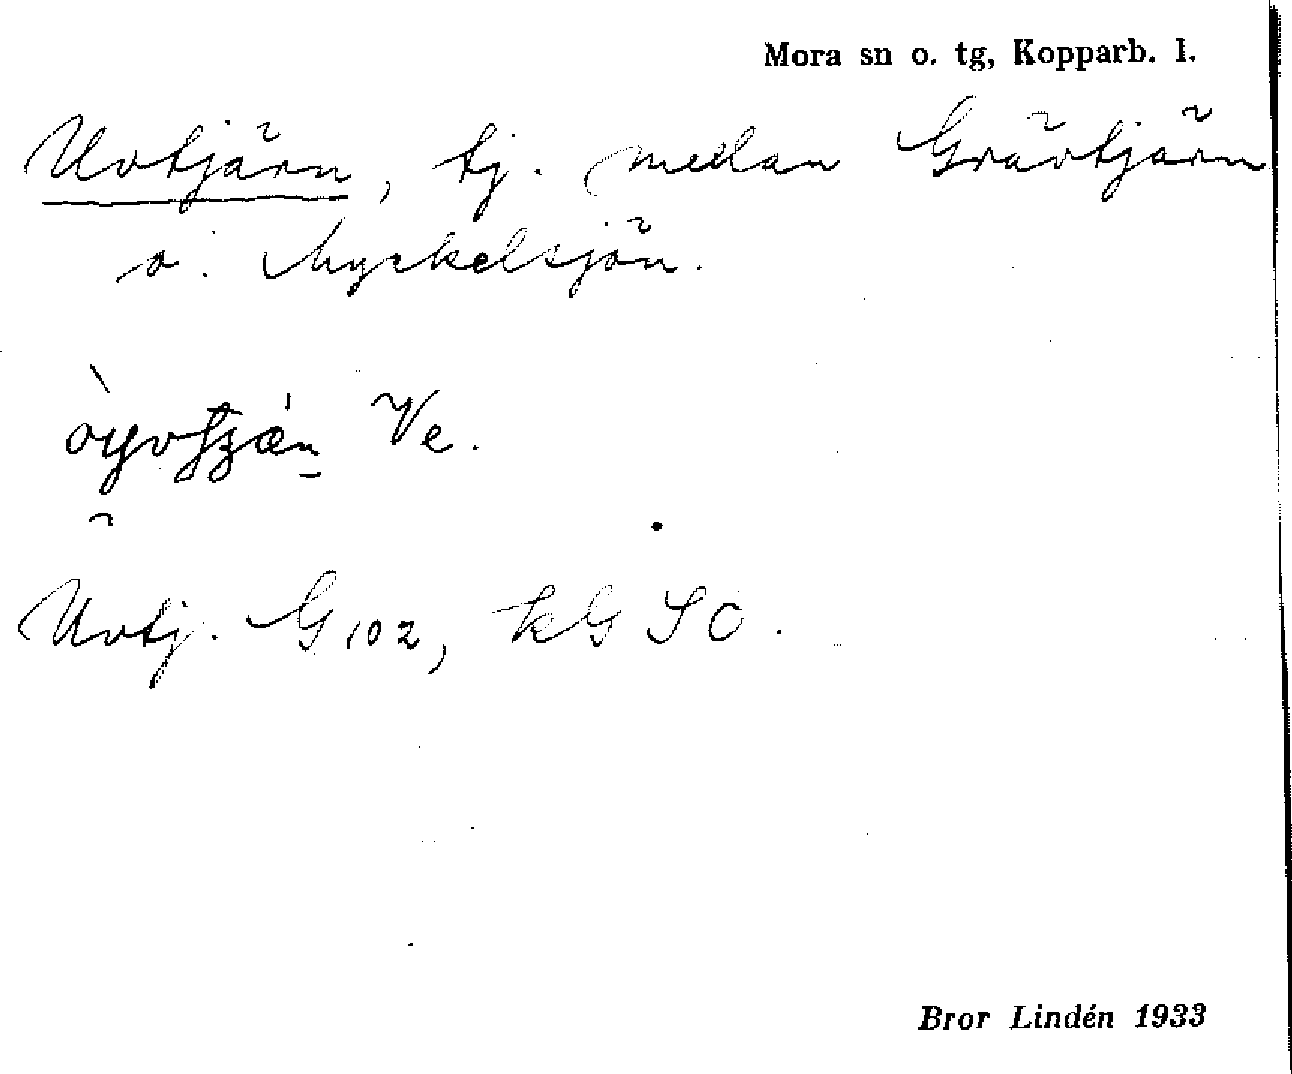 Mora sn o. tg, Kopparb. l.
Uvtjärn, tj. mellan Grävtjärn
o. Myckelsjön.
Ve.
Uvtj. G 102, kG SO.
Bror Lindén 1933